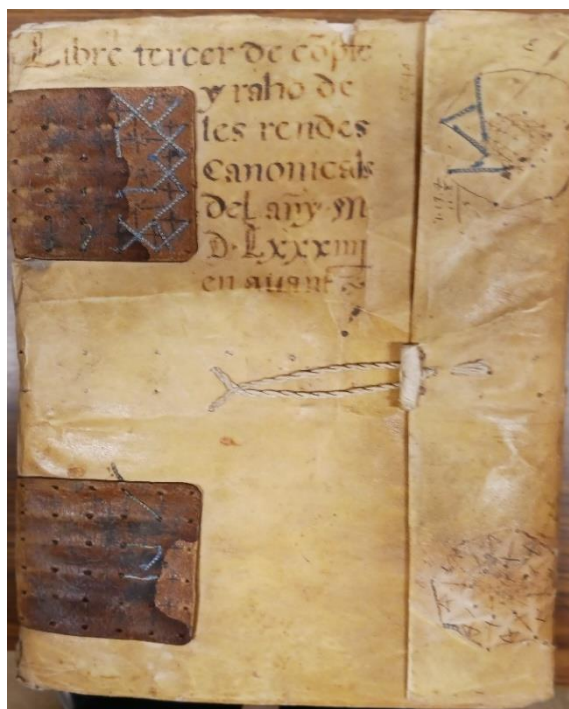 Libre tercer de cõpte
y raho de
les rendes
Canonicals
del añy·M
D·Lxxxiiij
en auant